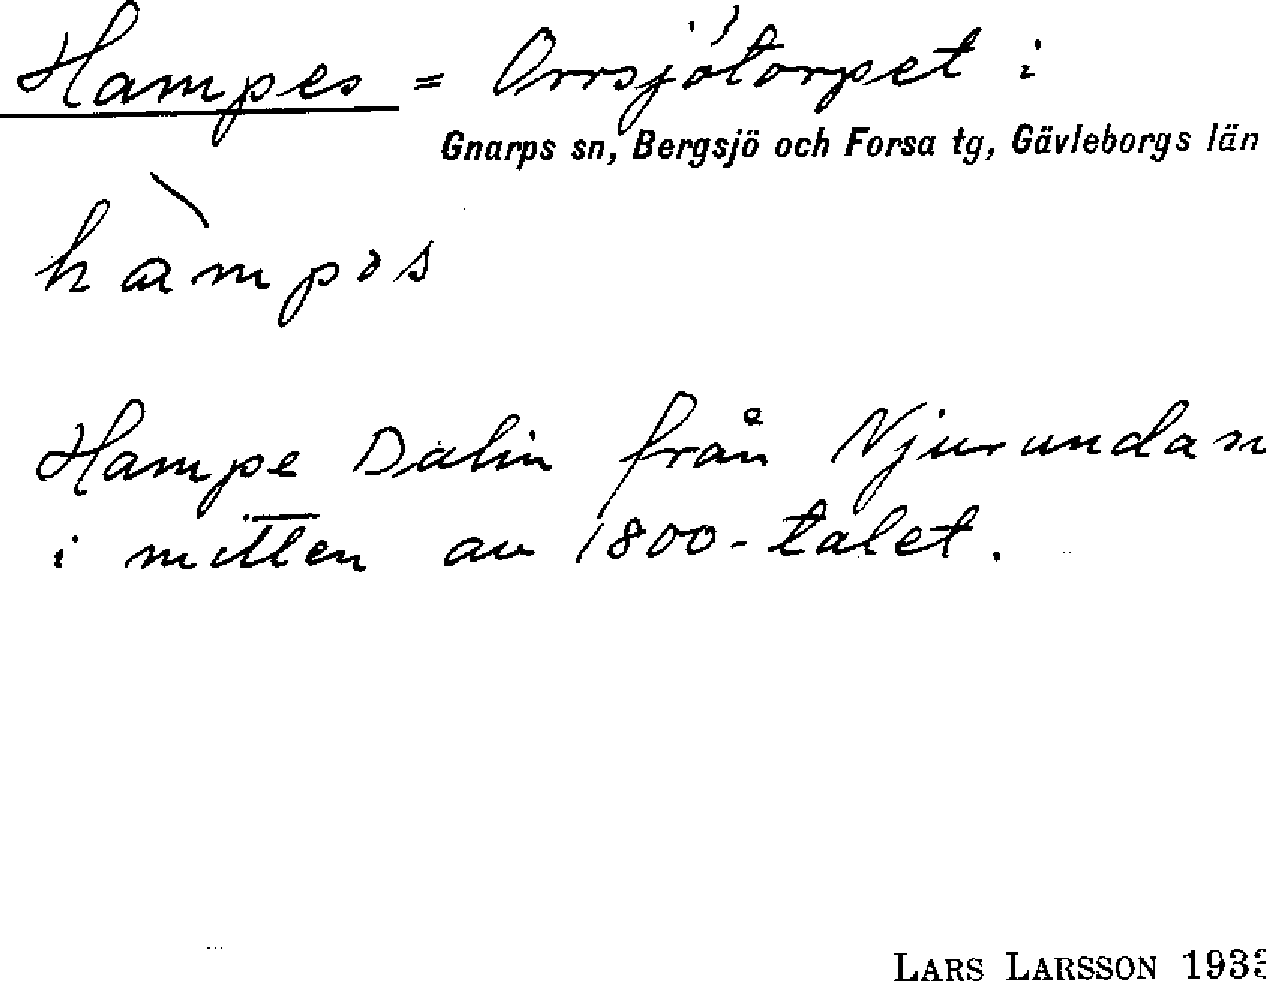 Hampes = Orrsjötorpet i
Gnarps sn, Bergsjö och Forsa tg, Gävleborgs län
hàmpəs
Hampe Dalin från Njurundan
i mitten av 1800-talet.
LARS LARSSON 1933